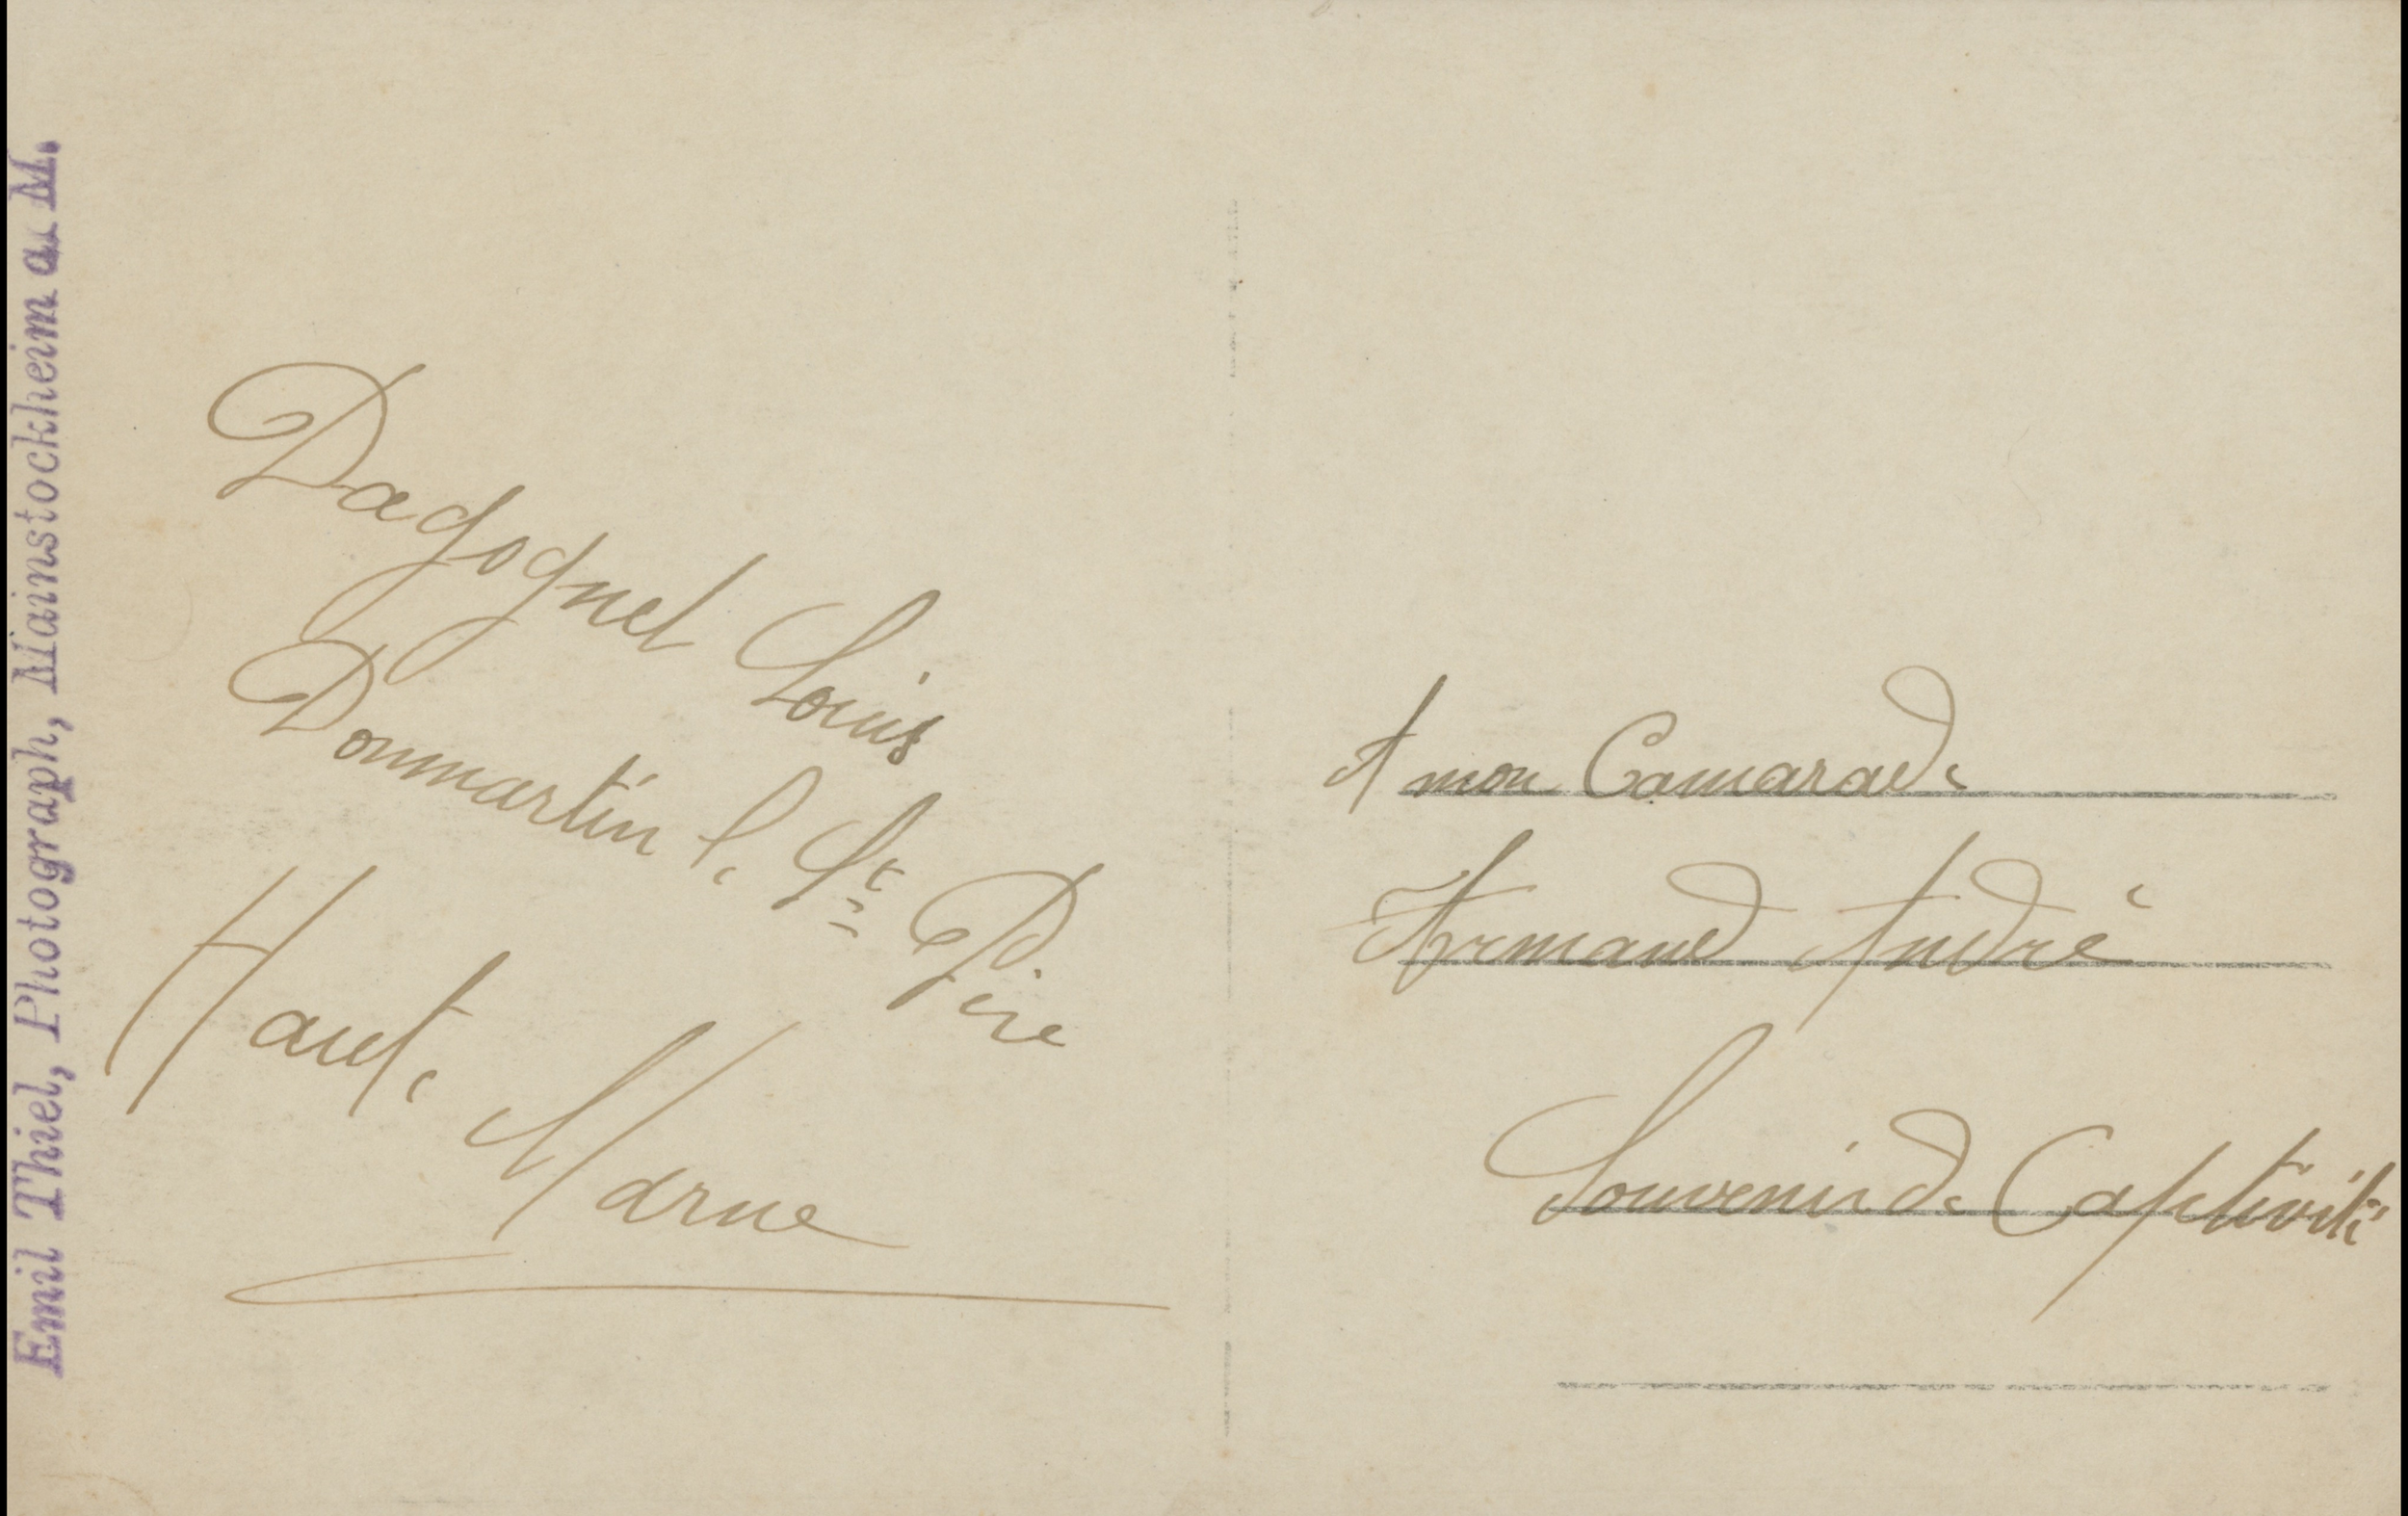 Emil Thiel, Photograph, Mainstockheim a. M.
Dagognet Louis
Dommartin l. St Père
Haute Marne
A mon Camarade
Armand André
Souvenir de Captivité